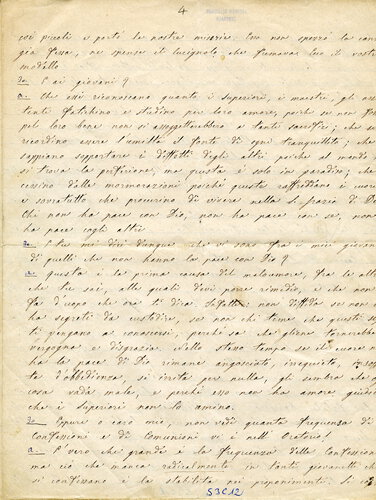 4
coi piccoli e portò le nostre miserie. Esso non spezzò la canna
già fessa, nè spense il lucignolo, che fumava. Ecco il vostro
modello.
D. E ai giovani?
R. Che essi riconoscano quanto i superiori, i maestri, gli assi-
stenti fatichino e studino per loro amore, poichè se non fosse
pel loro bene non si assoggetterebbero a tanti sacrifizi; che si
ricordino essere l'umiltà il fonte di ogni tranquillità; che
sappiano sopportare i difetti degli altri, poichè al mondo non
si trova la perfezione, ma questa è solo in paradiso; che
cessino dalle mormorazioni poichè queste raffreddano i cuori
e sovratutto che procurino di vivere nella S. grazia di Dio.
Chi non ha pace con Dio, non ha pace con sè, non ha
pace cogli altri.
D. E tu mi dici dunque che vi sono fra i miei giovani
di quelli che non hanno la pace con Dio?
R. Questa è la prima causa del malumore, fra le altre
che tu sai, alle quali devi porre rimedio, e che non
fa d'uopo che ora ti dica. Infatti: non diffida se non chi
ha segreti da custodire, se non chi teme che questi segre-
ti vengano a conoscersi, perchè sa che gliene tornerebbe
vergogna e disgrazia. Nello stesso tempo se il cuore non
ha la pace di Dio rimane angosciato, inrequieto, insoffe-
te d'obbedienza, si irrita per nulla, gli sembra che ogni
cosa vada male, e perchè esso non ha amore giudica
che i Superiori non lo amino.
D. Eppure o caro mio, non vedi quanta frequenza di
Confessioni e di Comunioni vi è nell'Oratorio!
R. È vero che grande è la frequenza delle Confessioni
ma ciò che manca radicalmente in tanti giovanetti che
si confessano è la stabilità nei proponimenti. Si con
S3C12